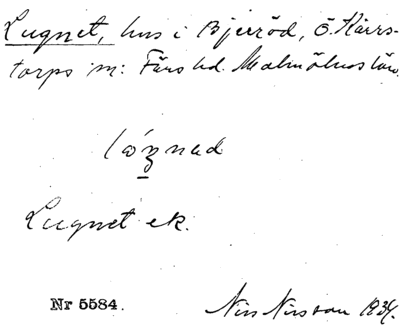 Lugnet, hus i Bjerröd, Ö. Kärrs-
torps sn: Färs hd. Malmöhus län.
Lugnet ek.
Nr 5584.
Nils Nilsson 1934.